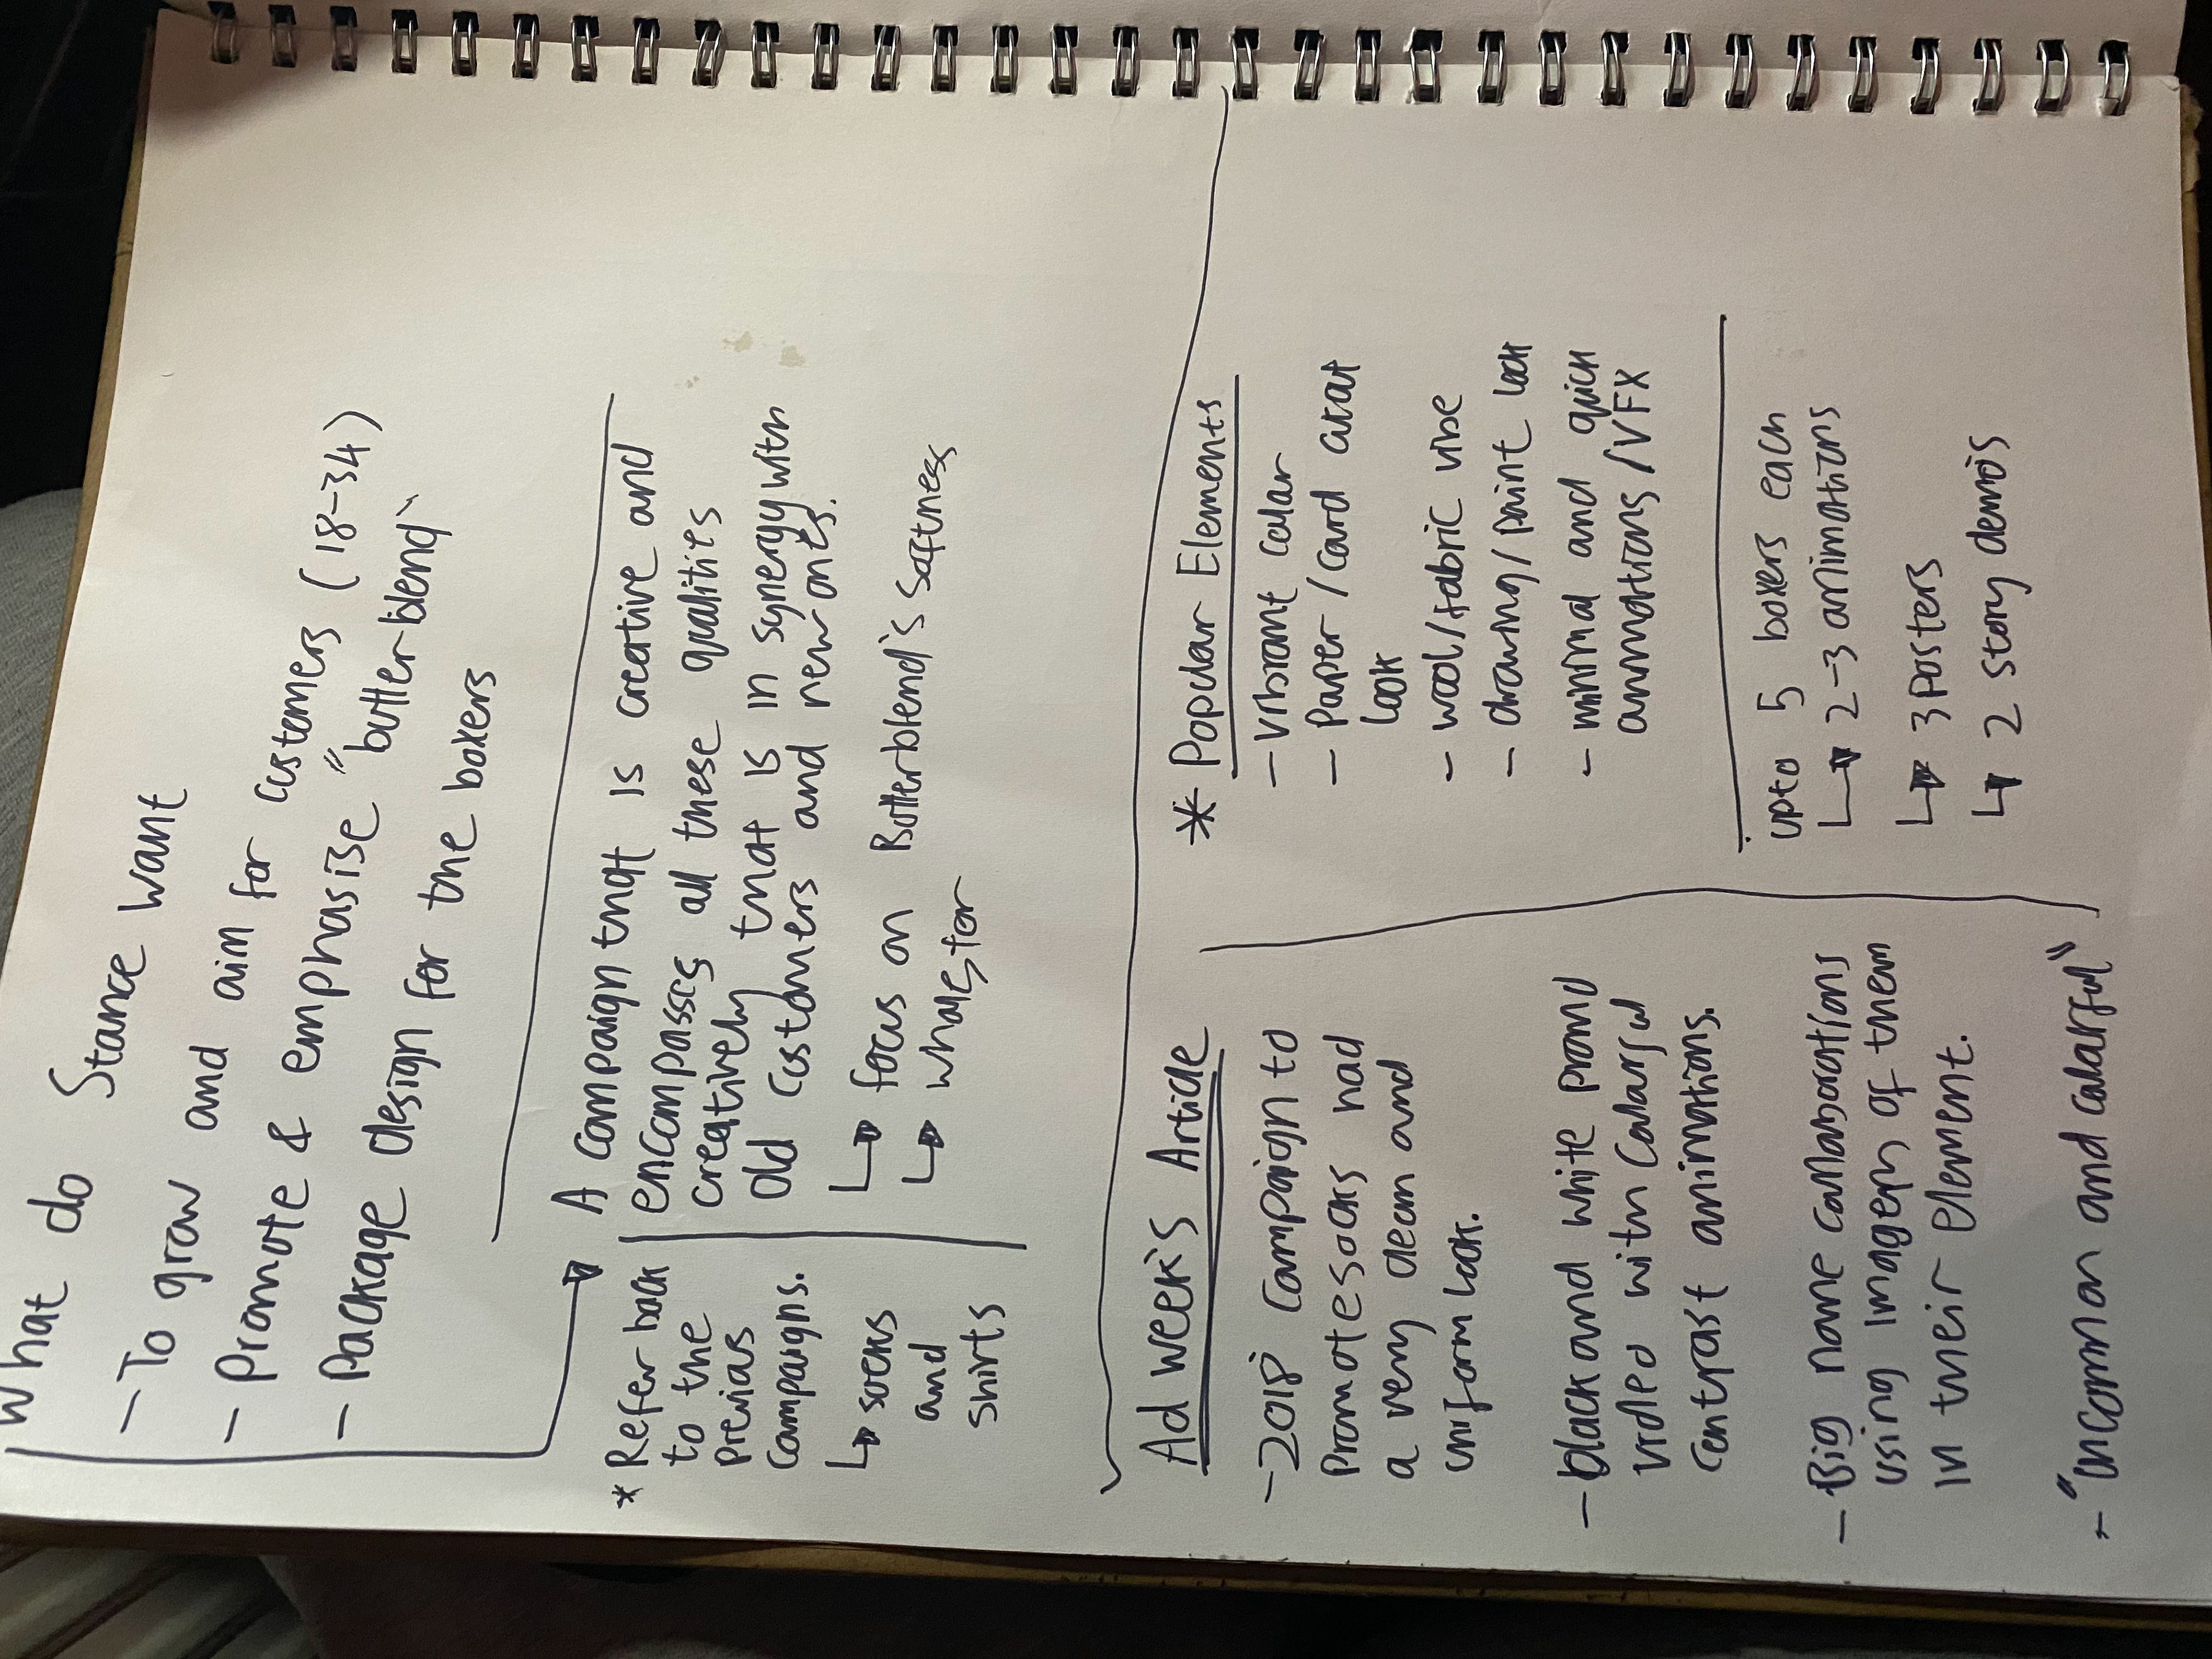 What do Stance want
- To grow and aim for customers (18-34)
- Promote & emphasise "butterblend"
- Package design for the boxers
A campaign that is creative and
encompasses all these qualities
creatively that is in synergy with
old customers and new ones.
↳ focus on Butterblend's softness
↳ wholester
* Refer back
to the
previous
campaigns.
↳ socks
and
shirts
Ad week's Article
- 2018 campaign to
promote socks had
a very clean and
uniform look.
- black and white promo
video with colorful
contrast animations.
- Big name collaborations
using imagery of them
in their element.
- "uncommon and colorful"
* Popular Elements
- vibrant color
- Paper/card cutout
look
- wool/fabric vibe
- drawing/paint look
- minimal and quick
animations/VFX
upto 5 boxers each
↳ 2-3 animations
↳ 3 posters
↳ 2 story demos